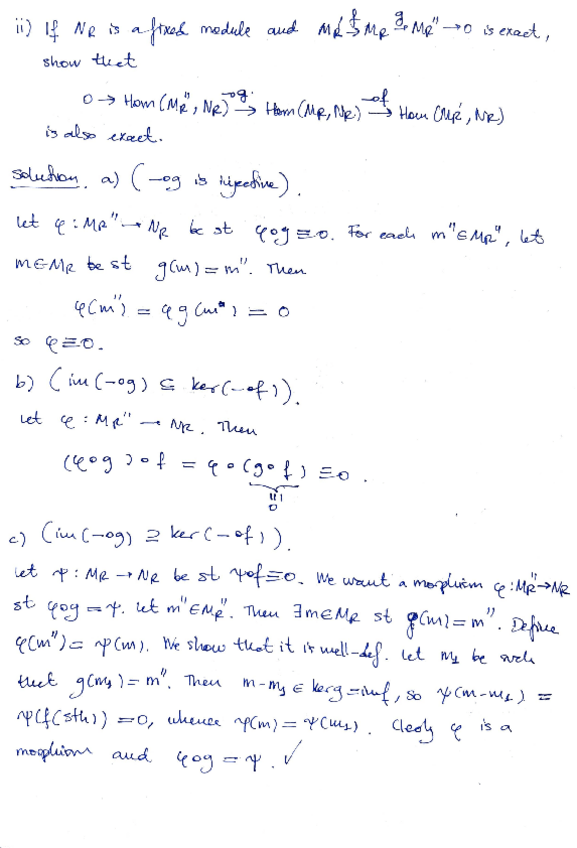 ii) If N_R is a fixed module and M_R' →^f M_R →^g M_R'' → 0 is exact,
show that
0 → Hom(M_R'', N_R) →^{-∘g} Hom(M_R, N_R) →^{-∘f} Hom(M_R', N_R)
is also exact.
Solution. a) (-∘g is injective).
Let φ : M_R'' → N_R be st φ∘g ≡ 0. For each m'' ∈ M_R'', let
m ∈ M_R be st g(m) = m''. Then
φ(m'') = φg(m) = 0
so φ ≡ 0.
b) (im(-∘g) ⊆ ker(-∘f)).
Let φ : M_R'' → N_R. Then
(φ∘g)∘f = φ∘(g∘f) ≡ 0.
≡ 0
c) (im(-∘g) ⊇ ker(-∘f)).
Let ψ : M_R → N_R be st ψ∘f ≡ 0. We want a morphism φ : M_R'' → N_R
st φ∘g = ψ. Let m'' ∈ M_R''. Then ∃ m ∈ M_R st g(m) = m''. Define
φ(m'') = ψ(m). We show that it is well-def. Let m_1 be such
that g(m_1) = m''. Then m - m_1 ∈ ker g = im f, so ψ(m - m_1) =
ψ(f(sth)) = 0, whence ψ(m) = ψ(m_1). Clearly φ is a
morphism and φ∘g = ψ. ✓